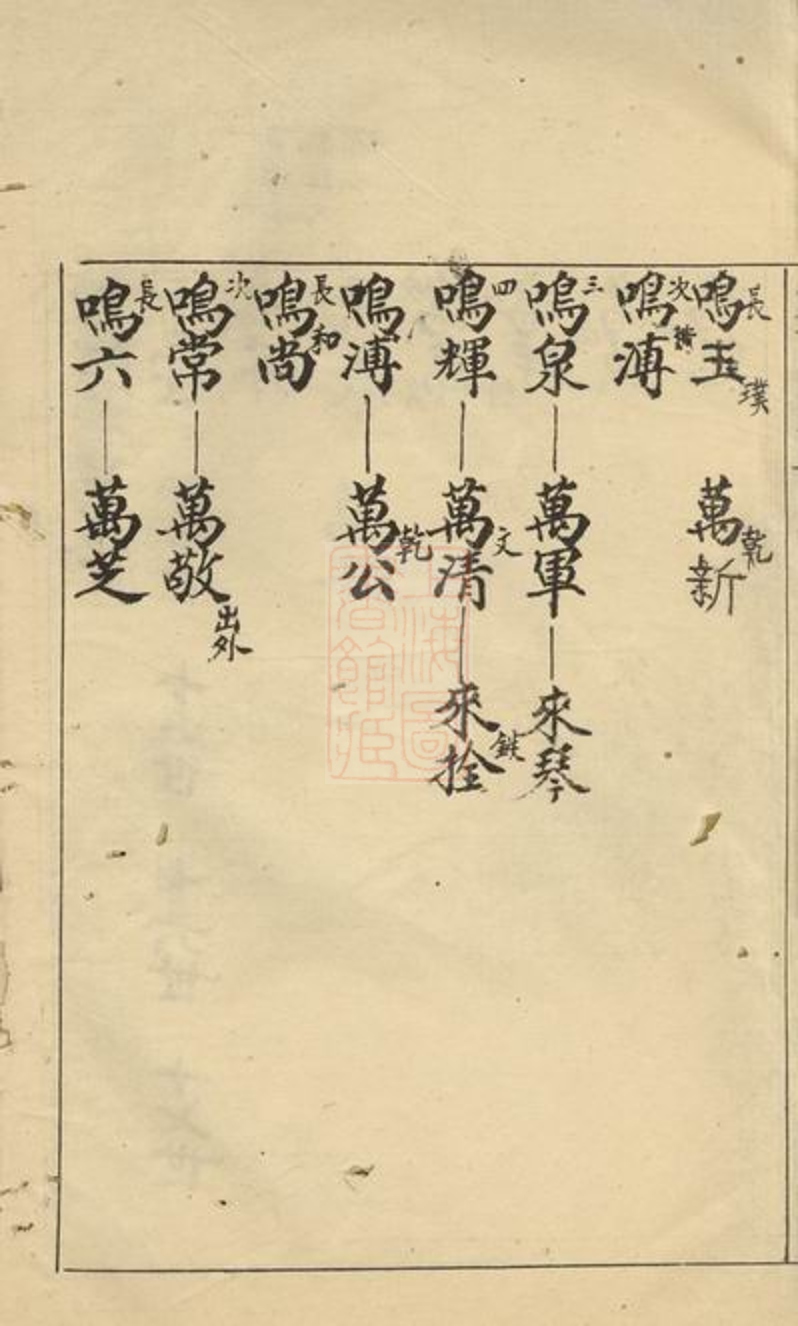 長 鳴玉 璞 萬新 乾
次 鳴溥
三 鳴泉 萬軍 來琴
四 鳴輝 萬清 文 來拴
鳴溥 萬公 乾
長 鳴尚 和
次 鳴常 萬敬 出外
長 鳴六 萬芝